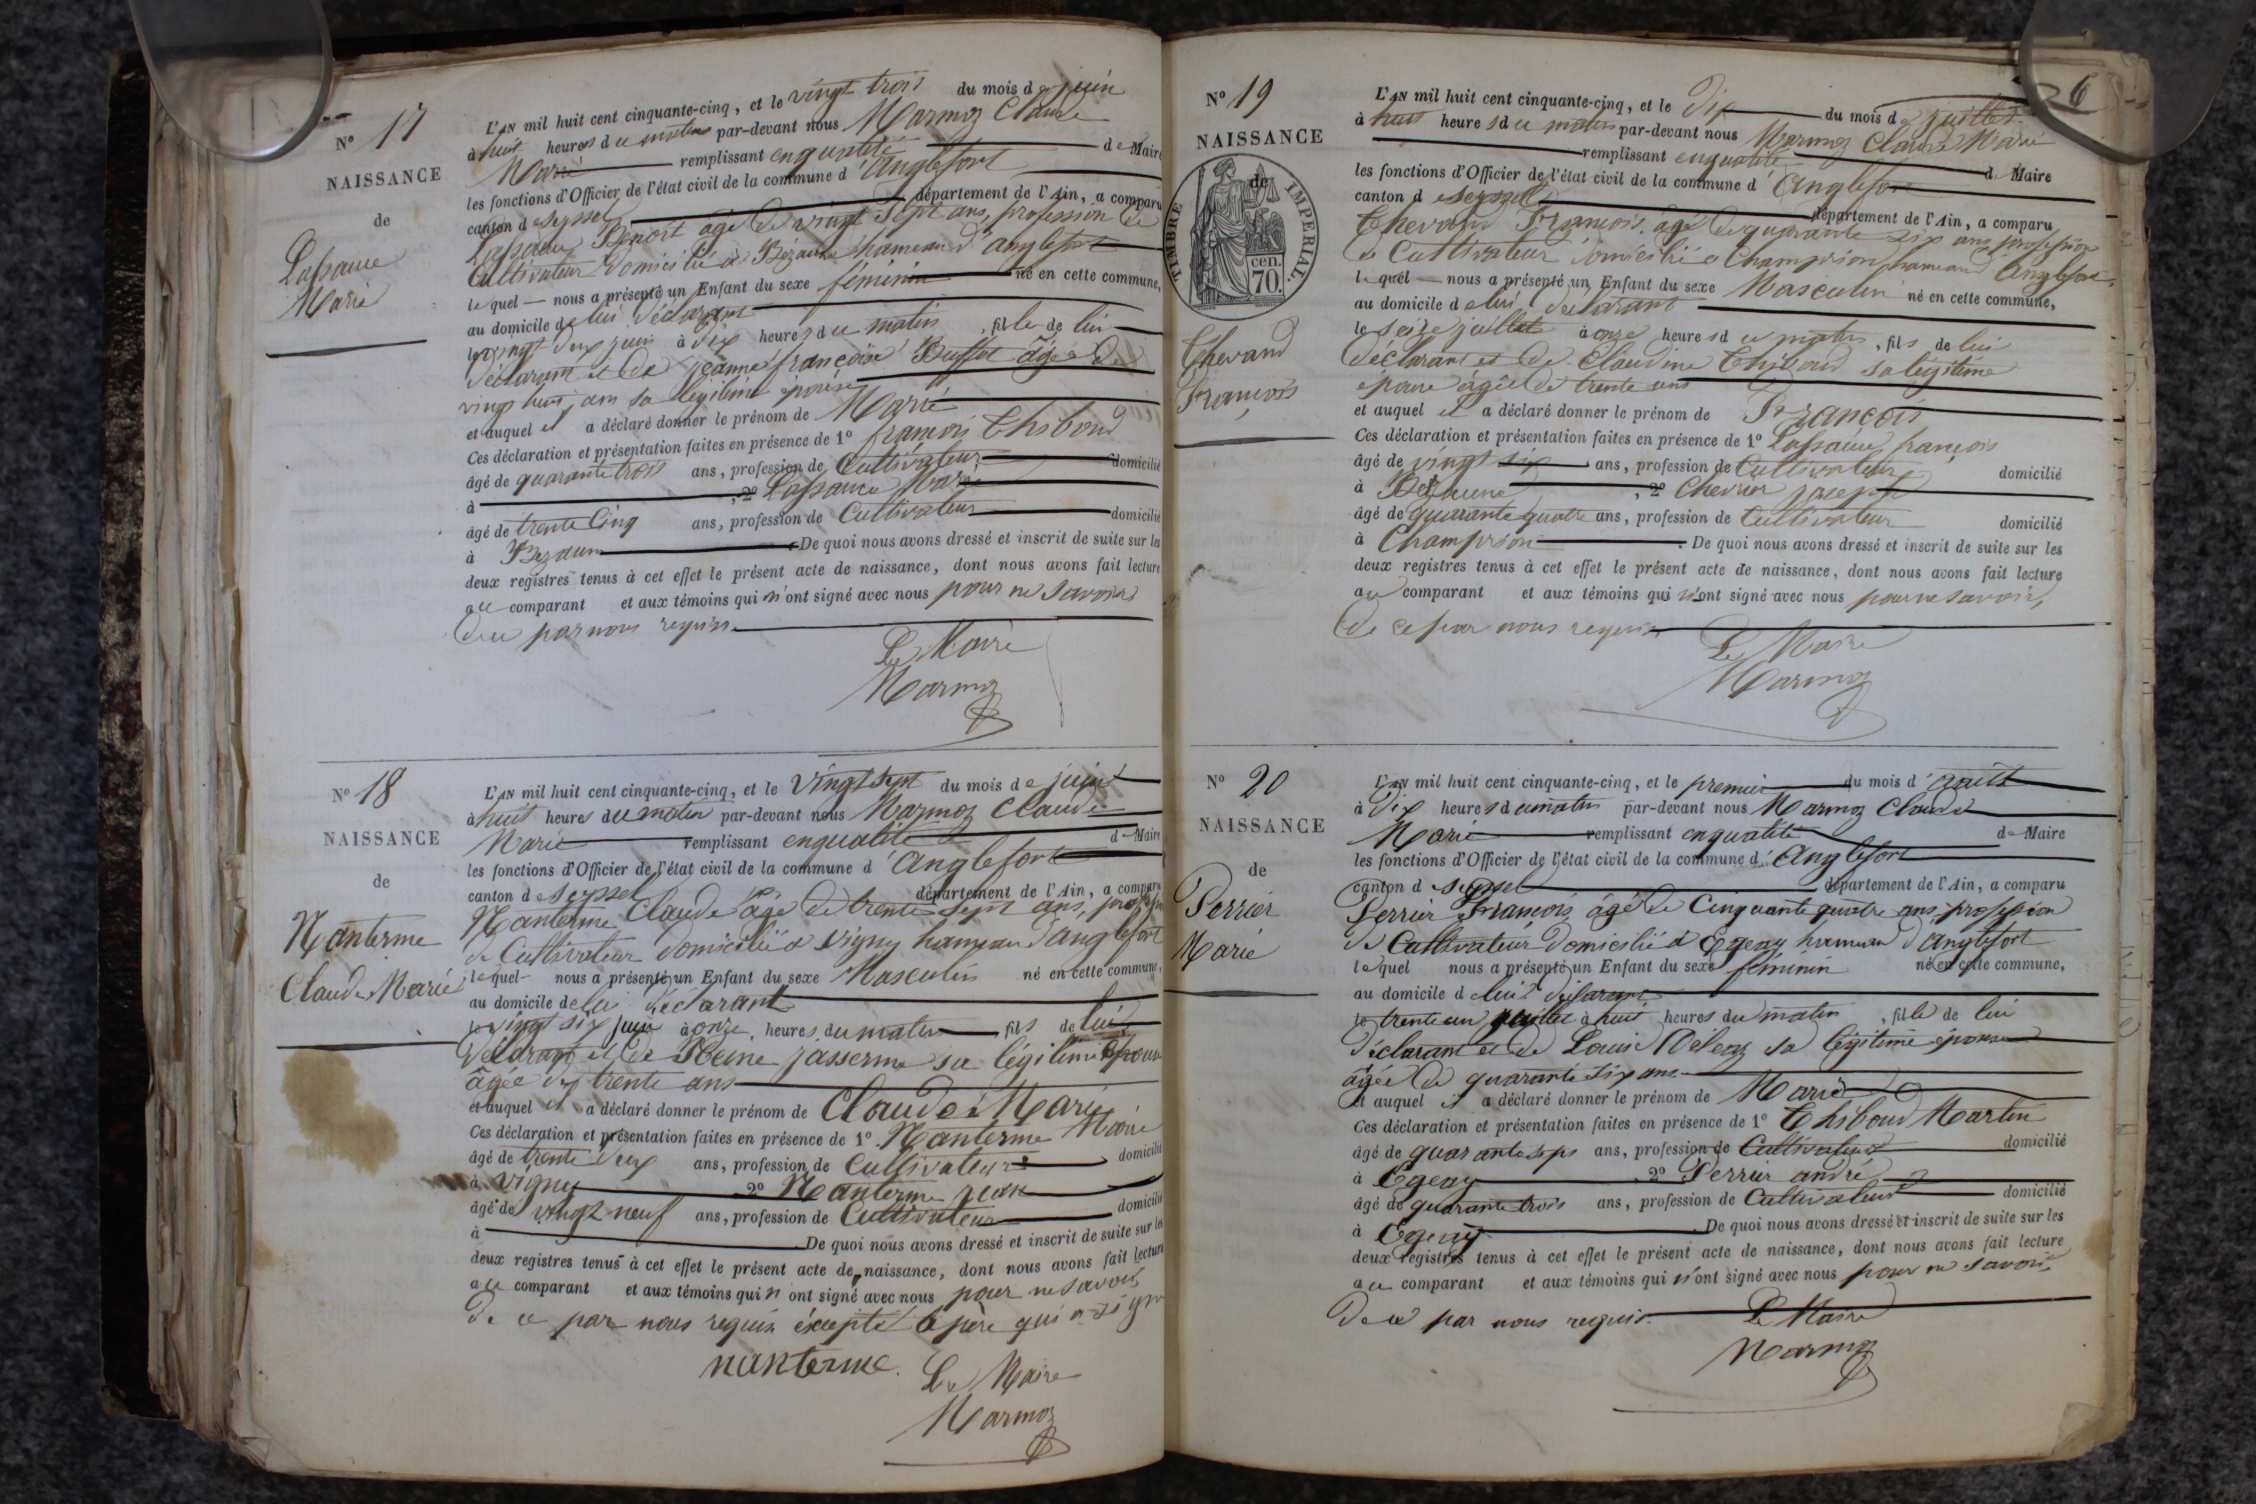 N° 17
NAISSANCE
de
Lassauce
Marie
L'AN mil huit cent cinquante-cinq, et le vingt trois du mois de juin
à huit heures du matin par-devant nous Marmoz Claude
Marie remplissant en qualité de Maire
les fonctions d'Officier de l'état civil de la commune d'anglefort
canton de Seyssel département de l'Ain, a comparu
Lassauce Benoit âgé de vingt sept ans, profession de
Cultivateur domicilié à hameau d'anglefort
lequel nous a présenté un Enfant du sexe féminin né en cette commune,
au domicile de lui déclarant
le vingt deux juin à dix heures du matin, fille de lui
déclarant et de jeanne françoise Buffet âgée de
vingt huit ans sa légitime épouse
et auquel il a déclaré donner le prénom de Marie
Ces déclaration et présentation faites en présence de 1° françois Thiboud
âgé de quarante trois ans, profession de Cultivateur domicilié
à , 2° Lassauce Marie
âgé de trente Cinq ans, profession de Cultivateur domicilié
à De quoi nous avons dressé et inscrit de suite sur les
deux registres tenus à cet effet le présent acte de naissance, dont nous avons fait lecture
au comparant et aux témoins qui n'ont signé avec nous pour ne savoir
de ce par nous requis
Le Maire
Marmoz
N° 18
NAISSANCE
de
Nanterme
Claude Marie
L'AN mil huit cent cinquante-cinq, et le vingt sept du mois de juin
à huit heures du matin par-devant nous Marmoz Claude
Marie remplissant en qualité de Maire
les fonctions d'Officier de l'état civil de la commune d'anglefort
canton de Seyssel département de l'Ain, a comparu
Nanterme Claude âgé de trente sept ans, profession
de Cultivateur domicilié à vigny hameau d'anglefort
lequel nous a présenté un Enfant du sexe Masculin né en cette commune,
au domicile de lui déclarant
le vingt six juin à onze heures du matin fils de lui
déclarant et de Reine jasserme sa légitime épouse
âgée de trente ans
et auquel il a déclaré donner le prénom de Claude Marie
Ces déclaration et présentation faites en présence de 1° Nanterme Marie
âgé de trente deux ans, profession de Cultivateur domicilié
à vigny 2° Nanterme jean
âgé de vingt neuf ans, profession de Cultivateur domicilié
à De quoi nous avons dressé et inscrit de suite sur les
deux registres tenus à cet effet le présent acte de naissance, dont nous avons fait lecture
au comparant et aux témoins qui n'ont signé avec nous pour ne savoir
de ce par nous requis éxcepté le père qui a signé
nanterme. Le Maire
Marmoz
6
N° 19
NAISSANCE
de
TIMBRE IMPERIAL.
70 cen.
Chevand
François
L'AN mil huit cent cinquante-cinq, et le dix du mois de juillet
à huit heures du matin par-devant nous Marmoz Claude Marie
remplissant en qualité de Maire
les fonctions d'Officier de l'état civil de la commune d'Anglefort
canton de Seyssel département de l'Ain, a comparu
Chevand François âgé de quarante six ans, profession
de Cultivateur domicilié à Champrion hameau d'Anglefort
lequel nous a présenté un Enfant du sexe Masculin né en cette commune,
au domicile de lui déclarant
le seize juillet à onze heures du matin, fils de lui
déclarant et de Claudine Thiboud sa légitime
épouse âgée de trente ans
et auquel il a déclaré donner le prénom de François
Ces déclaration et présentation faites en présence de 1° Lassauce françois
âgé de vingt six ans, profession de Cultivateur domicilié
à , 2° Chevrier joseph
âgé de quarante quatre ans, profession de Cultivateur domicilié
à Champrion. De quoi nous avons dressé et inscrit de suite sur les
deux registres tenus à cet effet le présent acte de naissance, dont nous avons fait lecture
au comparant et aux témoins qui n'ont signé avec nous pour ne savoir,
de ce par nous requis
Le Maire
Marmoz
N° 20
NAISSANCE
de
Perrier
Marie
L'AN mil huit cent cinquante-cinq, et le premier du mois d'août
à dix heures du matin par-devant nous Marmoz Claude
Marie remplissant en qualité de Maire
les fonctions d'Officier de l'état civil de la commune d'Anglefort
canton de Seyssel département de l'Ain, a comparu
Perrier François âgé de Cinquante quatre ans profession
de Cultivateur domicilié à Egeay hameau d'anglefort
lequel nous a présenté un Enfant du sexe féminin né en cette commune,
au domicile de lui déclarant
le trente un juillet à huit heures du matin, fille de lui
déclarant et de Louise sa légitime épouse
âgée de quarante six ans
et auquel il a déclaré donner le prénom de Marie
Ces déclaration et présentation faites en présence de 1° Thiboud Martin
âgé de quarante sept ans, profession de Cultivateur domicilié
à Egeay , 2° Perrier andré
âgé de quarante trois ans, profession de Cultivateur domicilié
à Egeay De quoi nous avons dressé et inscrit de suite sur les
deux registres tenus à cet effet le présent acte de naissance, dont nous avons fait lecture
au comparant et aux témoins qui n'ont signé avec nous pour ne savoir,
de ce par nous requis. Le Maire
Marmoz